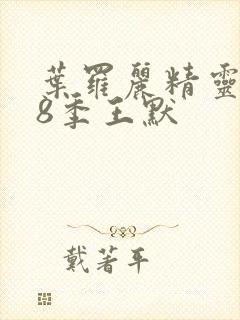 葉羅麗精靈
8季王默
戴著平